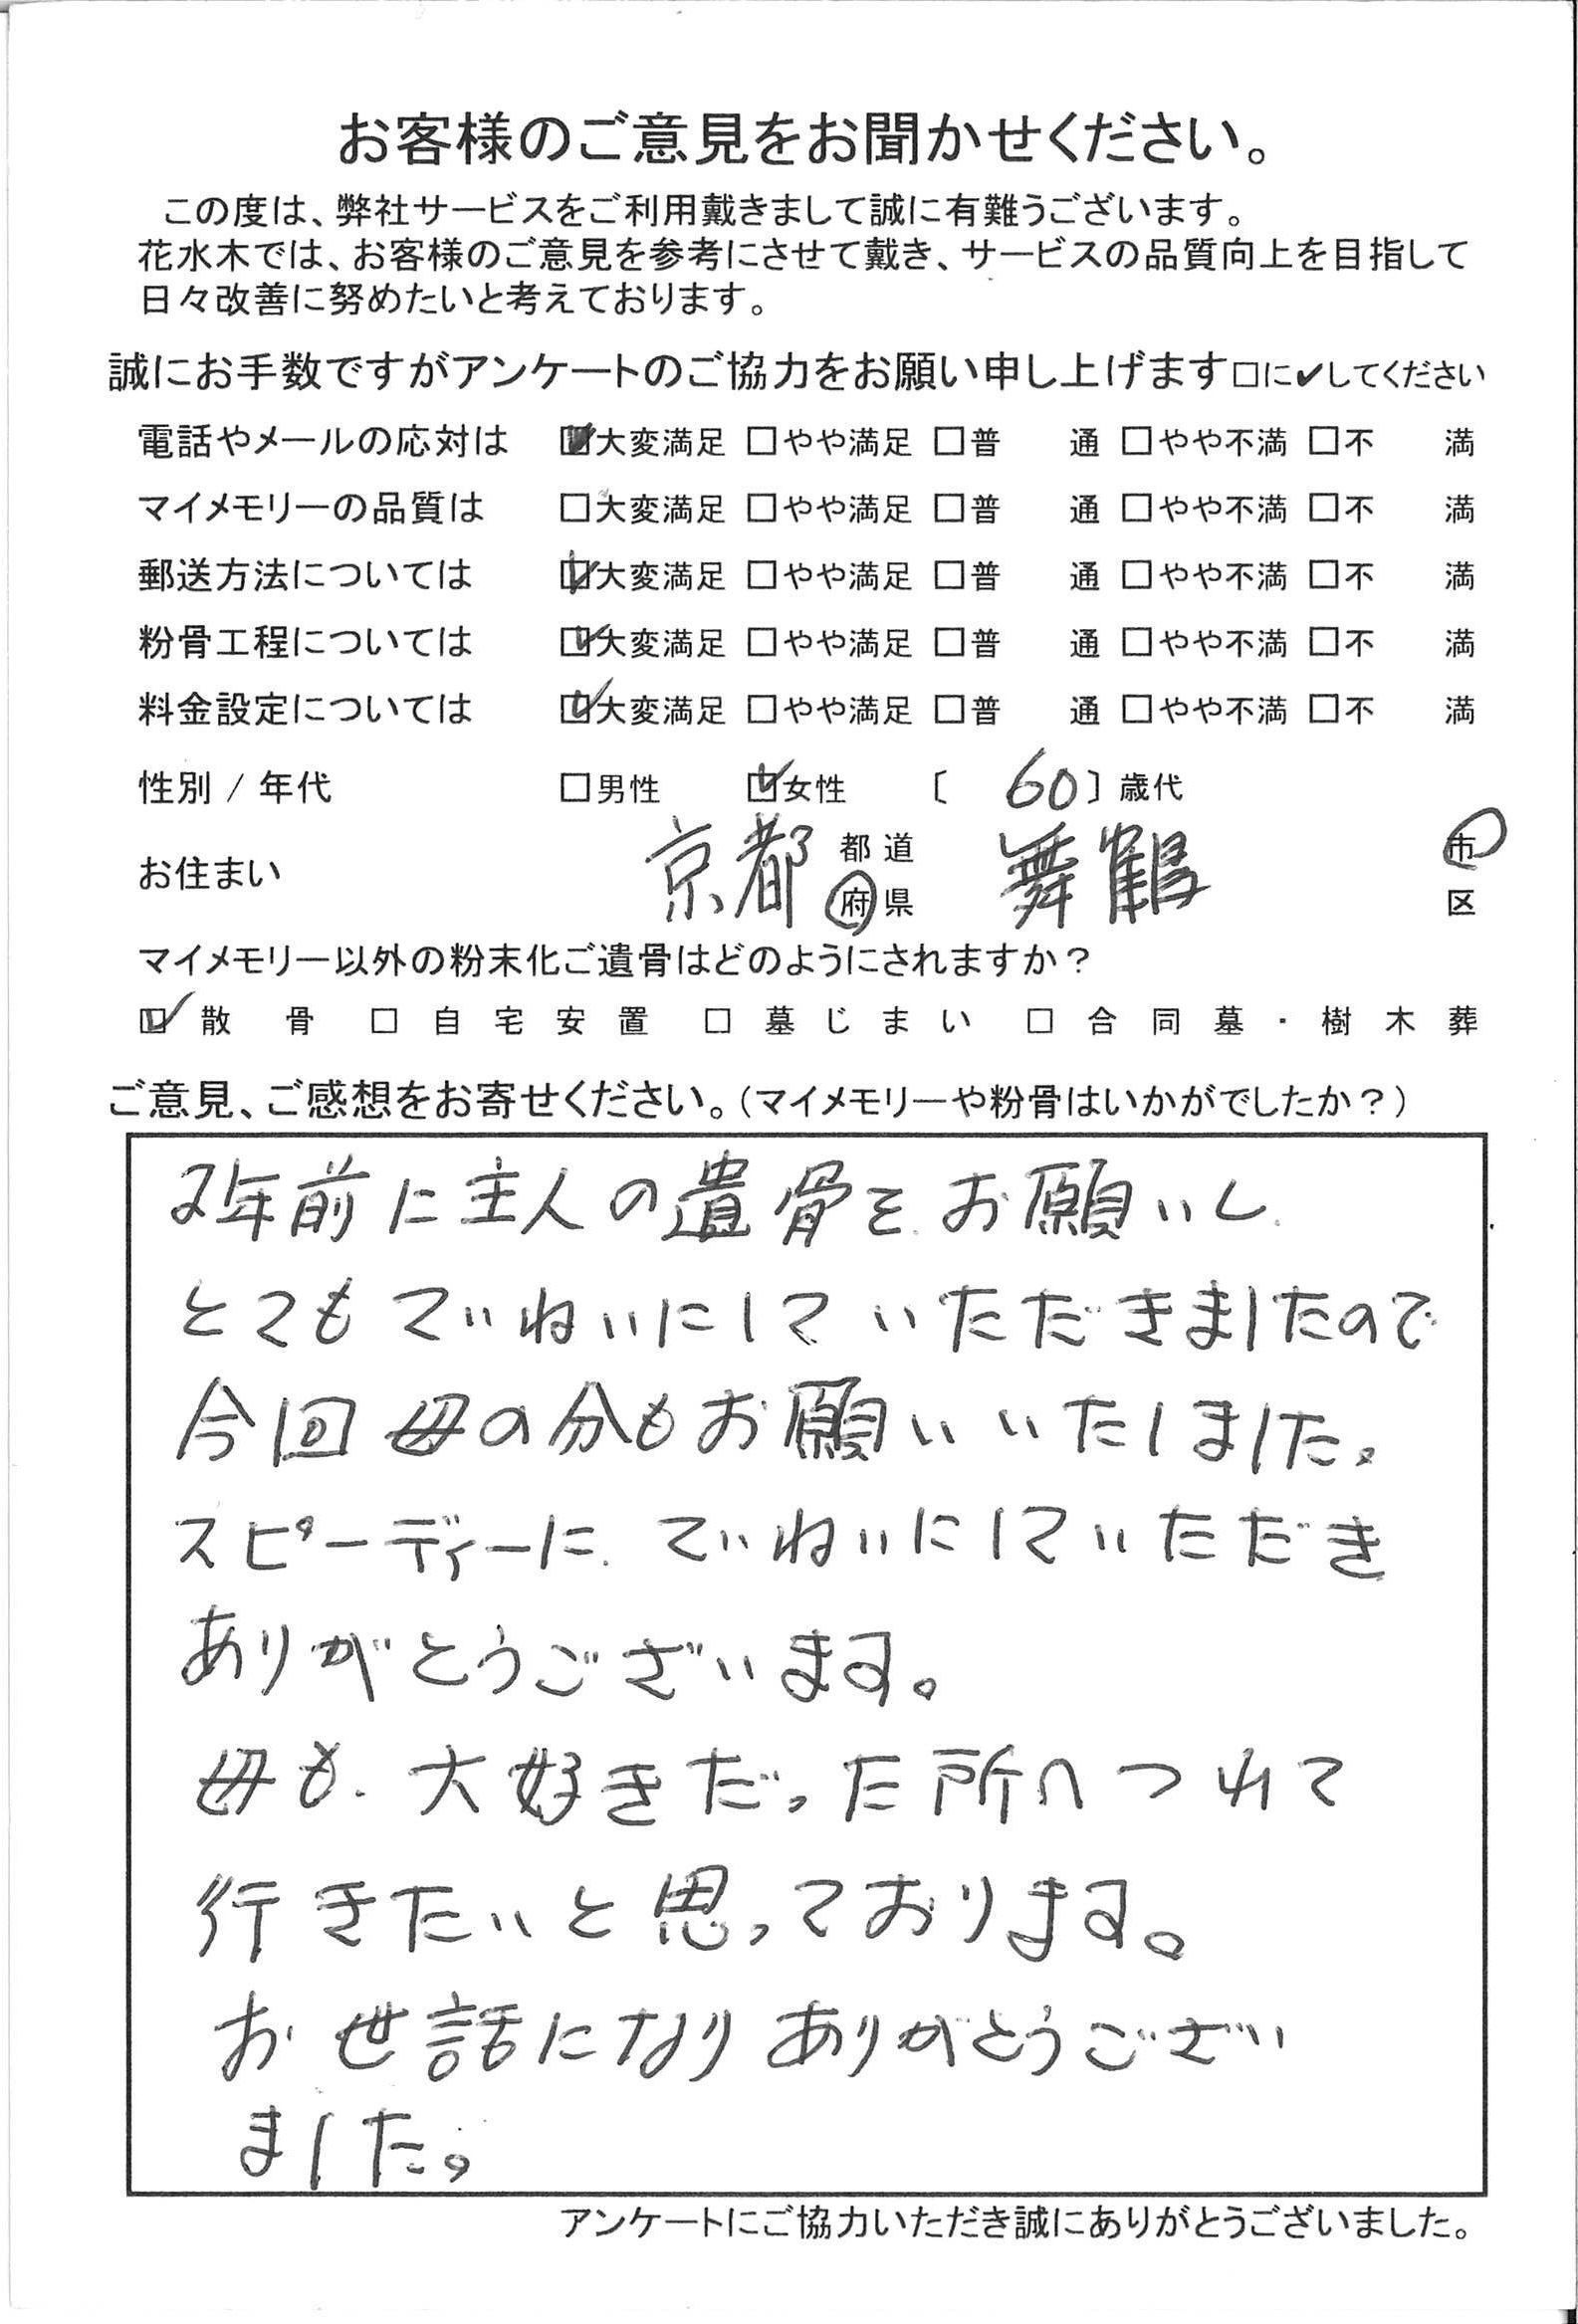 お客様のご意見をお聞かせください。
この度は、弊社サービスをご利用戴きまして誠に有難うございます。
花水木では、お客様のご意見を参考にさせて戴き、サービスの品質向上を目指して
日々改善に努めたいと考えております。
誠にお手数ですがアンケートのご協力をお願い申し上げます□に✔してください
電話やメールの応対は ☑大変満足 □やや満足 □普 通 □やや不満 □不 満
マイメモリーの品質は □大変満足 □やや満足 □普 通 □やや不満 □不 満
郵送方法については ☑大変満足 □やや満足 □普 通 □やや不満 □不 満
粉骨工程については ☑大変満足 □やや満足 □普 通 □やや不満 □不 満
料金設定については ☑大変満足 □やや満足 □普 通 □やや不満 □不 満
性別 / 年代 □男性 ☑女性 〔 60 〕歳代
お住まい 京都 都道府県 舞鶴 市区
マイメモリー以外の粉末化ご遺骨はどのようにされますか？
☑ 散骨 □ 自宅安置 □ 墓じまい □ 合同墓・樹木葬
ご意見、ご感想をお寄せください。（マイメモリーや粉骨はいかがでしたか？）
2年前に主人の遺骨をお願いし
とてもていねいにしていただきましたので
今回母の分もお願いいたしました。
スピーディーに、ていねいにしていただき
ありがとうございます。
母も、大好きだった所へつれて
行きたいと思っております。
お世話になりありがとうござい
ました。
アンケートにご協力いただき誠にありがとうございました。